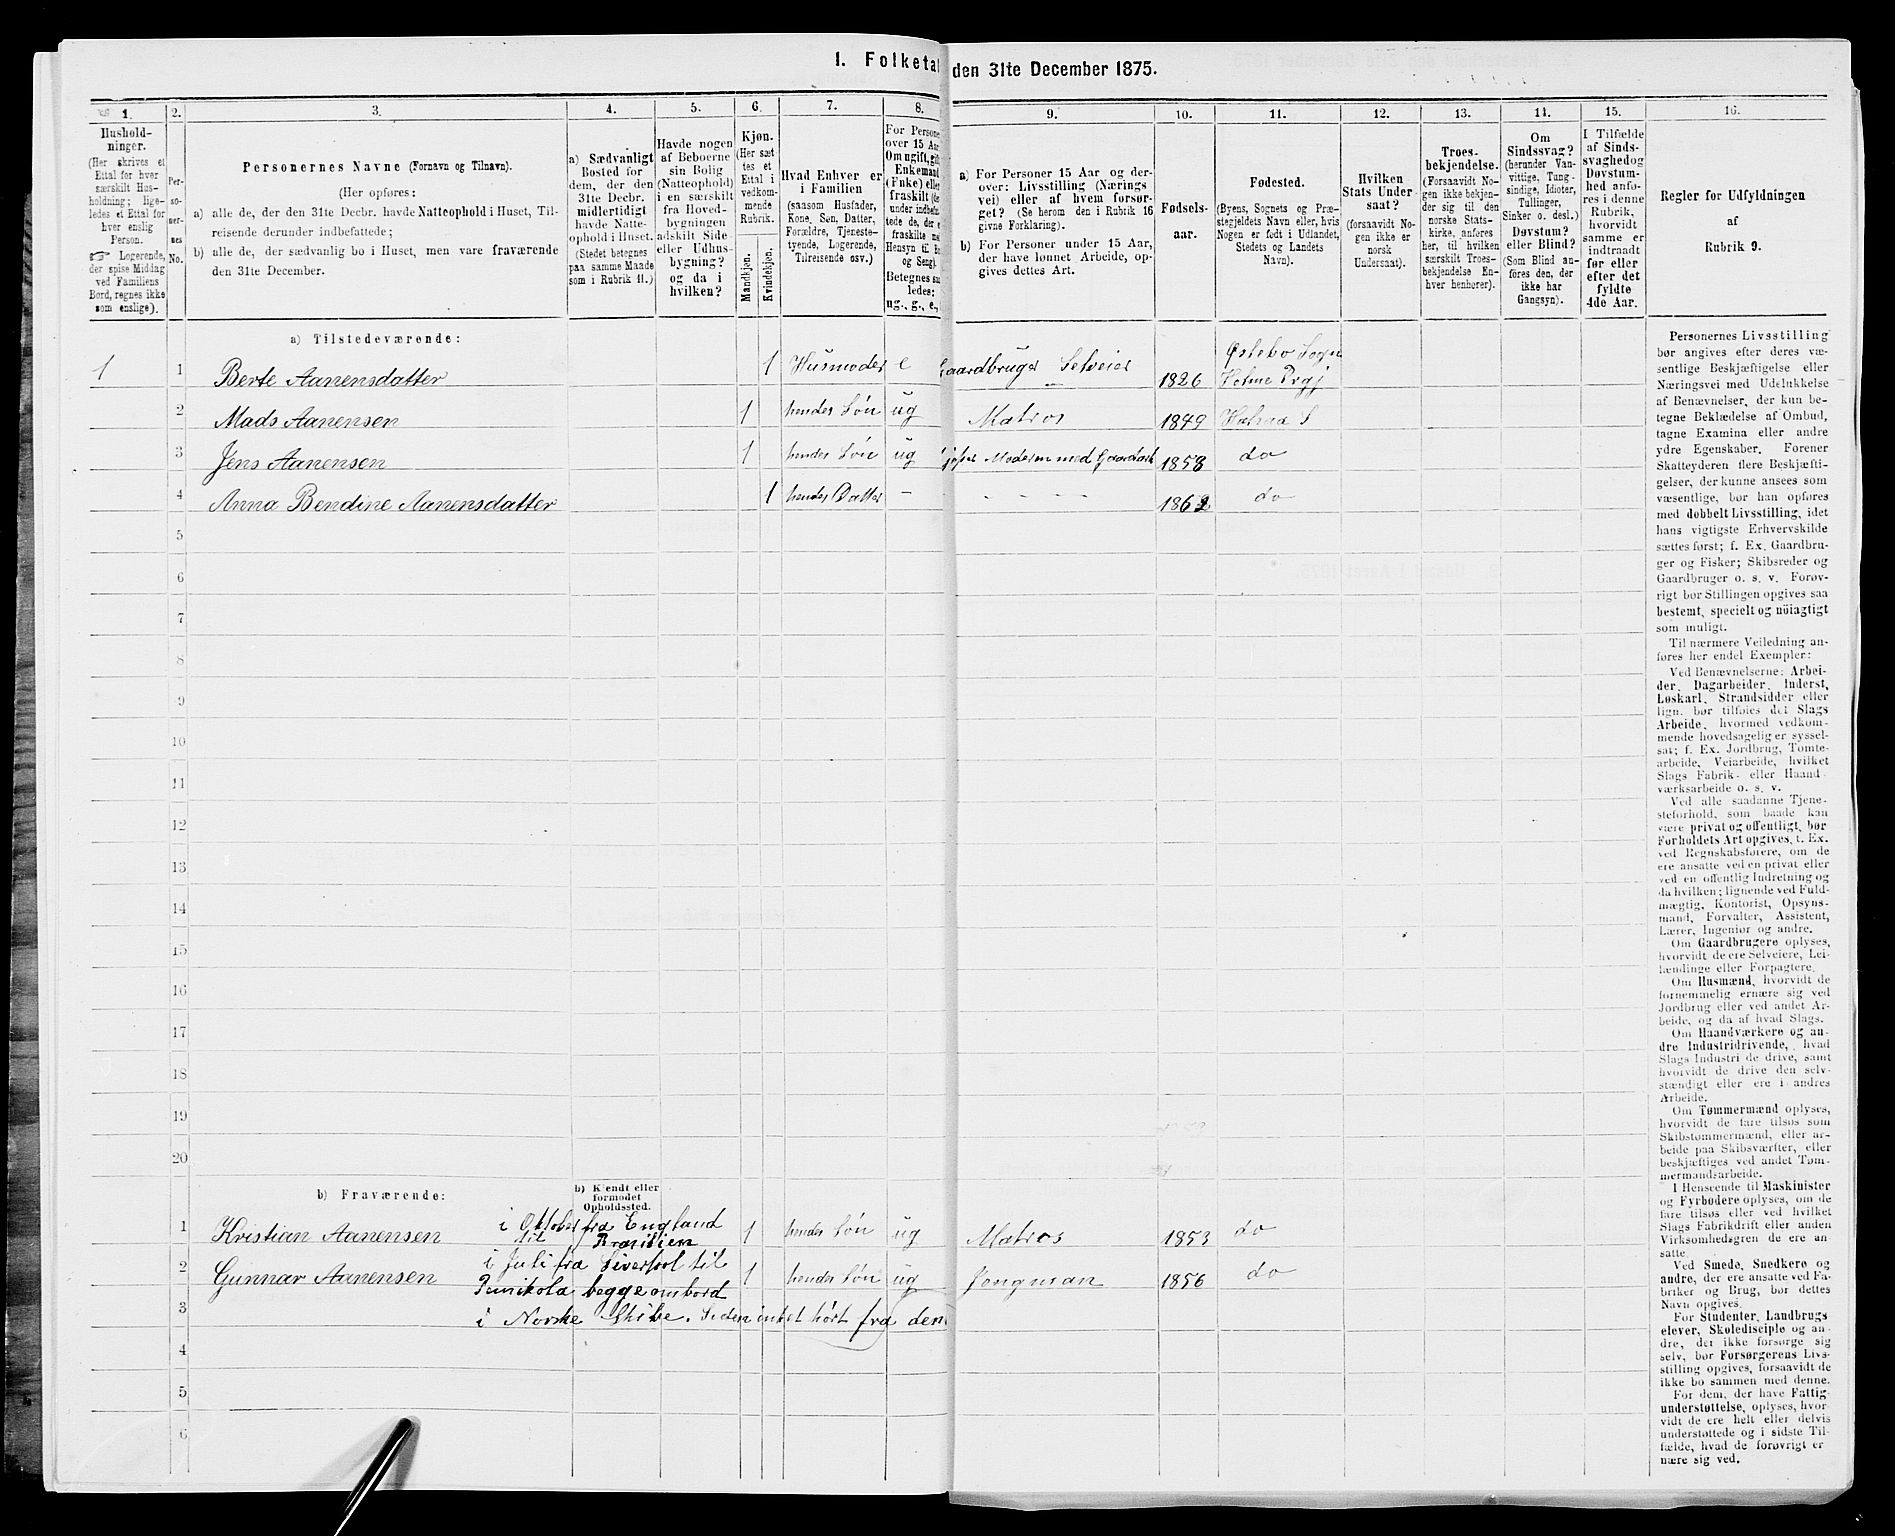 1. Folketal den 31te December 1875.
1. 2. 3. 4. 5. 6. 7. 8. 9. 10. 11. 12. 13. 14. 15. 16.
Hushold-
ninger.
(Her skrives et
Ettal for hver
særskilt Hus-
holdning; lige-
ledes et Ettal for
hver enslig
Person.
☞ Logerende,
der spise Middag
ved Familiens
Bord, regnes ikke
som enslige).
Per-
so-
ner-
nes
No.
Personernes Navne (Fornavn og Tilnavn).
(Her opføres:
a) alle de, der den 31te Decbr. havde Natteophold i Huset, Til-
reisende derunder indbefattede;
b) alle de, der sædvanlig bo i Huset, men vare fraværende
den 31te December.
a) Sædvanligt
Bosted for
dem, der den
31te Decbr.
midlertidigt
havde Natte-
ophold i Huset.
(Stedet betegnes
paa samme Maade
som i Rubrik 11.)
Havde nogen
af Beboerne
sin Bolig
(Natteophold)
i en særskilt
fra Hoved-
bygningen
adskilt Side-
eller Udhus-
bygning?
og da i
hvilken?
Kjøn.
(Her sæt
tes et
Ettal i
vedkom-
mende
Rubrik.
Mandkjøn.
Kvindekjøn.
Hvad Enhver er
i Familien
(saasom Husfader,
Kone, Søn, Datter,
Forældre, Tjeneste-
tyende, Logerende,
Tilreisende osv.)
For Persone
over 15 Aar
Om ugift, gift
Enkemand
(Enke) elle
fraskilt (der
under indbefat
tede de, der e
fraskilte me
Hensyn til B
og Seng).
Betegnes saa
ledes:
ug., g., e.,
a) For Personer 15 Aar og der-
over: Livsstilling (Nærings
vei) eller af hvem forsør-
get? (Se herom den i Rubrik 16
givne Forklaring).
b) For Personer under 15 Aar,
der have lønnet Arbeide, op-
gives dettes Art.
Fødsels-
aar.
Fødested.
(Byens, Sognets og Præ-
stegjeldets Navn eller, hvis
Nogen er født i Udlandet,
Stedets og Landets
Navn).
Hvilken
Stats Under-
saat?
(forsaavidt No-
gen ikke er
norsk
Undersaat).
Troes-
bekjendelse.
(Forsaavidt No-
gen ikke bekjen-
der sig til den
norske Stats-
kirke, anføres
her, til hvilken
særskilt Troes-
bekjendelse En-
hver henhører).
Om
Sindssvag?
(herunder Van-
vittige, Tung-
sindige, Idioter,
Tullinger,
Sinker o. desl.)
Døvstum?
eller Blind?
(Som Blind an-
føres den, der
ikke har
Gangsyn).
I Tilfælde
af Sinds-
svaghed og
Døvstum-
hed anfø-
res i denne
Rubrik,
hvorvidt
samme er
indtraadt
før eller
efter det
fyldte
4de Aar.
Regler for Udfyldningen
af
Rubrik 9.
a) Tilstedeværende:
1 1 Berte Aanensdatter 1 Husmoder e Gaardbruger Selveier 1826 Østebo Sogn
Holme Prgj
2 Mads Aanensen 1 hendes Søn ug Matros 1849 Holma S
3 Jens Aanensen 1 hendes Søn ug Moderen med 1858 do
4 Anna Bendine Aanensdatter 1 hendes Datter - - - - - 1862 do
5
6
7
8
9
10
11
12
13
14
15
16
17
18
19
20
b) Fraværende:
b) Kjendt eller
formodet
Opholdssted.
1 Kristian Aanensen i Oktober fra England
til Brasilien 1 hendes Søn ug Matros 1853 do
2 Gunnar Aanensen i Juli fra Liverpol til
begge ombord 1 hendes Søn ug Jongman 1856 do
3 i Norske Skibe. Siden inket hört fra dem
4
5
6
Personernes Livsstilling
bør angives efter deres væ-
sentlige Beskjæftigelse eller
Næringsvei med Udelukkelse
af Benævnelser, der kun be-
tegne Beklædelse af Ombud,
tagne Examina eller andre
ydre Egenskaber. Forener
Skatteyderen flere Beskjæfti-
gelser, der kunne ansees som
væsentlige, bør han opføres
med dobbelt Livsstilling, idet
hans vigtigste Erhvervskilde
sættes først; f. Ex. Gaardbru-
ger og Fisker; Skibsreder og
Gaardbruger o. s. v. Forøv-
rigt bør Stillingen opgives saa
bestemt, specielt og nöiagtigt
som muligt.
Til nærmere Veiledning an-
føres her endel Exempler:
Ved Benævnelserne: Arbei-
der, Dagarbeider, Inderst,
Løskarl, Strandsidder eller
lign. bør tilføies det Slags
Arbeide, hvormed vedkom-
mende hovedsagelig er syssel-
sat; f. Ex. Jordbrug, Tomte-
arbeide, Veiarbeide, hvilket
Slags Fabrik- eller Haand-
værksarbeide o. s. v.
Ved alle saadanne Tjene-
steforhold, som baade kan
være privat og offentligt, bør
Forholdets Art opgives, t. Ex.
ved Regnskabsførere, om de
ere ansatte ved en privat eller
ved en offentlig Indretning og
da hvilken; lignende ved Fuld-
mægtig, Kontorist, Opsyns-
mand, Forvalter, Assistent,
Lærer, Ingeniør og andre.
Om Gaardbrugere oplyses,
hvorvidt de ere Selveiere, Lei-
lændinge eller Forpagtere.
Om Husmænd, hvorvidt de
fornemmelig ernære sig ved
Jordbrug eller ved andet Ar-
beide, og da af hvad Slags.
Om Haandværkere og an-
dre Industridrivende, hvad
Slags Industri de drive, samt
hvorvidt de drive den selv-
stændigt eller ere i andres
Arbeide.
Om Tømmermænd oplyses,
hvorvidt de fare tilsøs som
Skibstømmermænd, eller ar-
beide paa Skibsværfter, eller
beskjæftiges ved andet Tøm-
mermandsarbeide.
I Henseende til Maskinister
og Fyrbødere oplyses, om de
fare tilsøs eller ved hvilket
Slags Fabrikdrift eller anden
Virksomhedsgren de ere an-
satte.
Ved Smede, Snedkere og
andre, der ere ansatte ved Fa-
briker og Brug, bør dettes
Navn opgives.
For Studenter, Landbrugs
elever, Skoledisciple og an-
dre, der ikke forsørge sig
selv, bør Forsørgerens Livs-
stilling opgives, forsaavidt de
ikke bo sammen med denne.
For dem, der have Fattig-
understøttelse, oplyses, hvor-
vidt de ere helt eller delvis
understøttede og i sidste Til-
fælde, hvad de forøvrigt er-
nære sig ved.